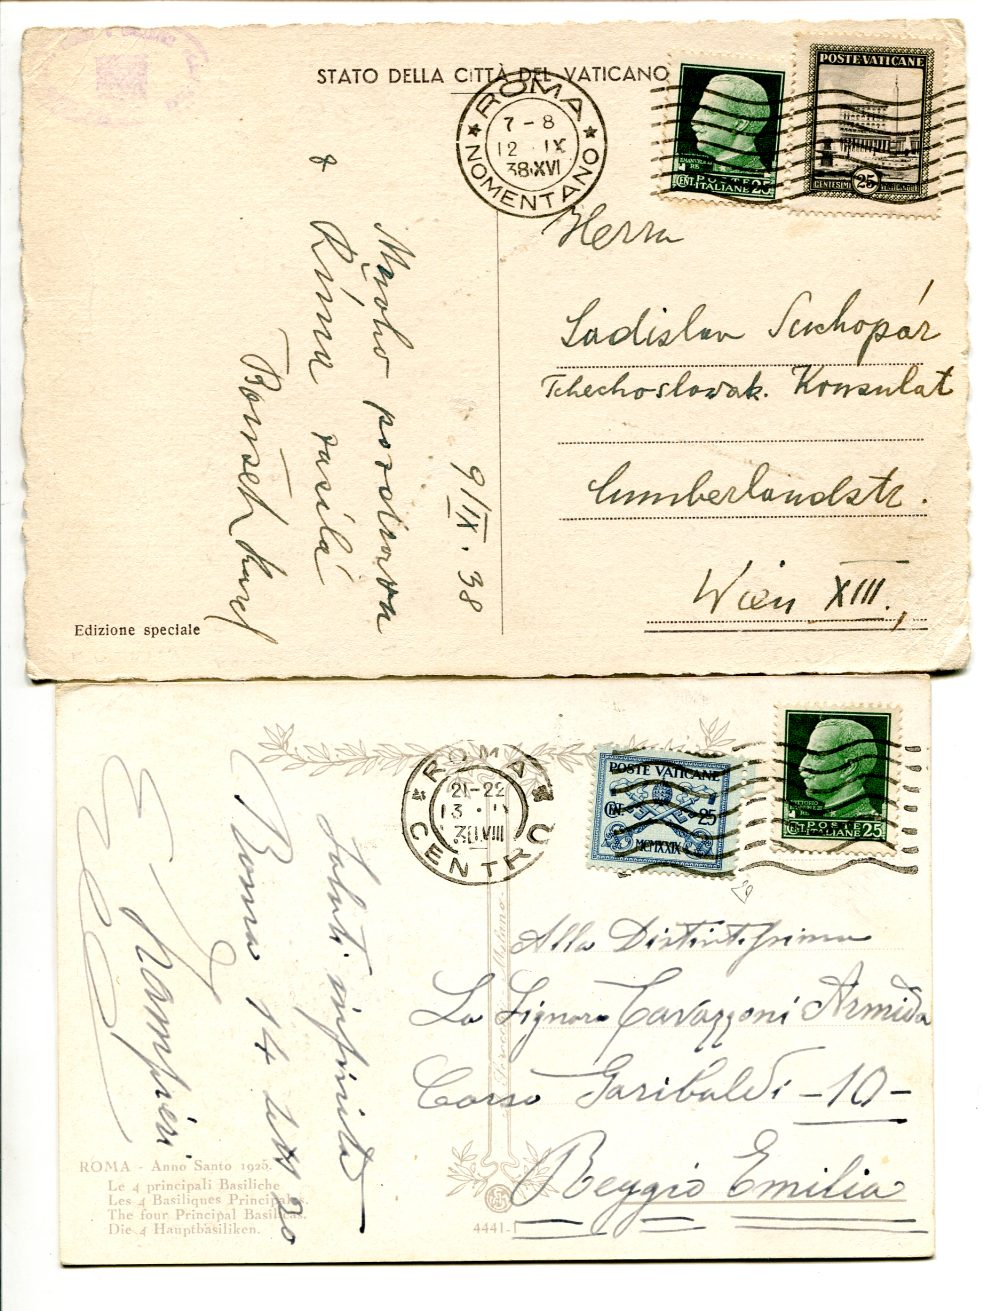 STATO DELLA CITTÀ DEL VATICANO
ROMA
NOMENTANO
7-8
12 · IX
38·XVI
POSTE
CENT. ITALIANE 25
POSTE VATICANE
CENTESIMI 25
Herrn
Ladislav Suchopár
Tchechoslowak. Konsulat
Cumberlandstr.
Wien XIII.,
9/IX. 38
Mnoho pozdravů
z Říma zasílá
Karel
Edizione speciale
ROMA
CENTRO
21-22
13 · IX
VIII
POSTE VATICANE
CENT. 25
MCMXXIX
VITTORIO
POSTE
CENT. ITALIANE 25
Alla Distintissima
La Signora Cavazzoni Armida
Corso Garibaldi -10-
Reggio Emilia
Saluti infiniti
Roma 14 sett 30
ROMA - Anno Santo 1925.
Le 4 principali Basiliche
Les 4 Basiliques Principales.
The four Principal Basilicas.
Die 4 Hauptbasiliken.
4441-1